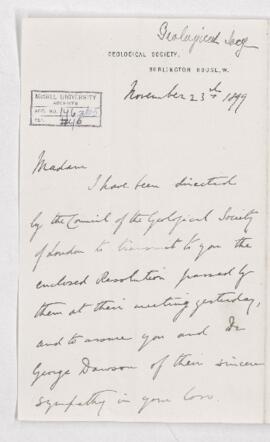 Geological Socy
GEOLOGICAL SOCIETY,
BURLINGTON HOUSE, W.
November 23rd 1899
McGILL UNIVERSITY
ARCHIVES
ACC. NO.
REF.
Madam
I have been directed
by the Council of the Geological Society
of London to transmit to you the
enclosed Resolution passed by
them at their meeting yesterday,
and to assure you and Dr
George Dawson of their sincere
sympathy in your loss.